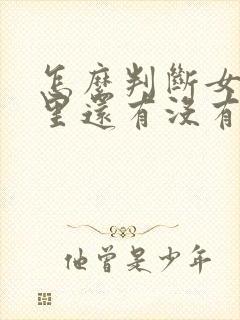 怎麼判斷女
里還有沒有
他曾是少年